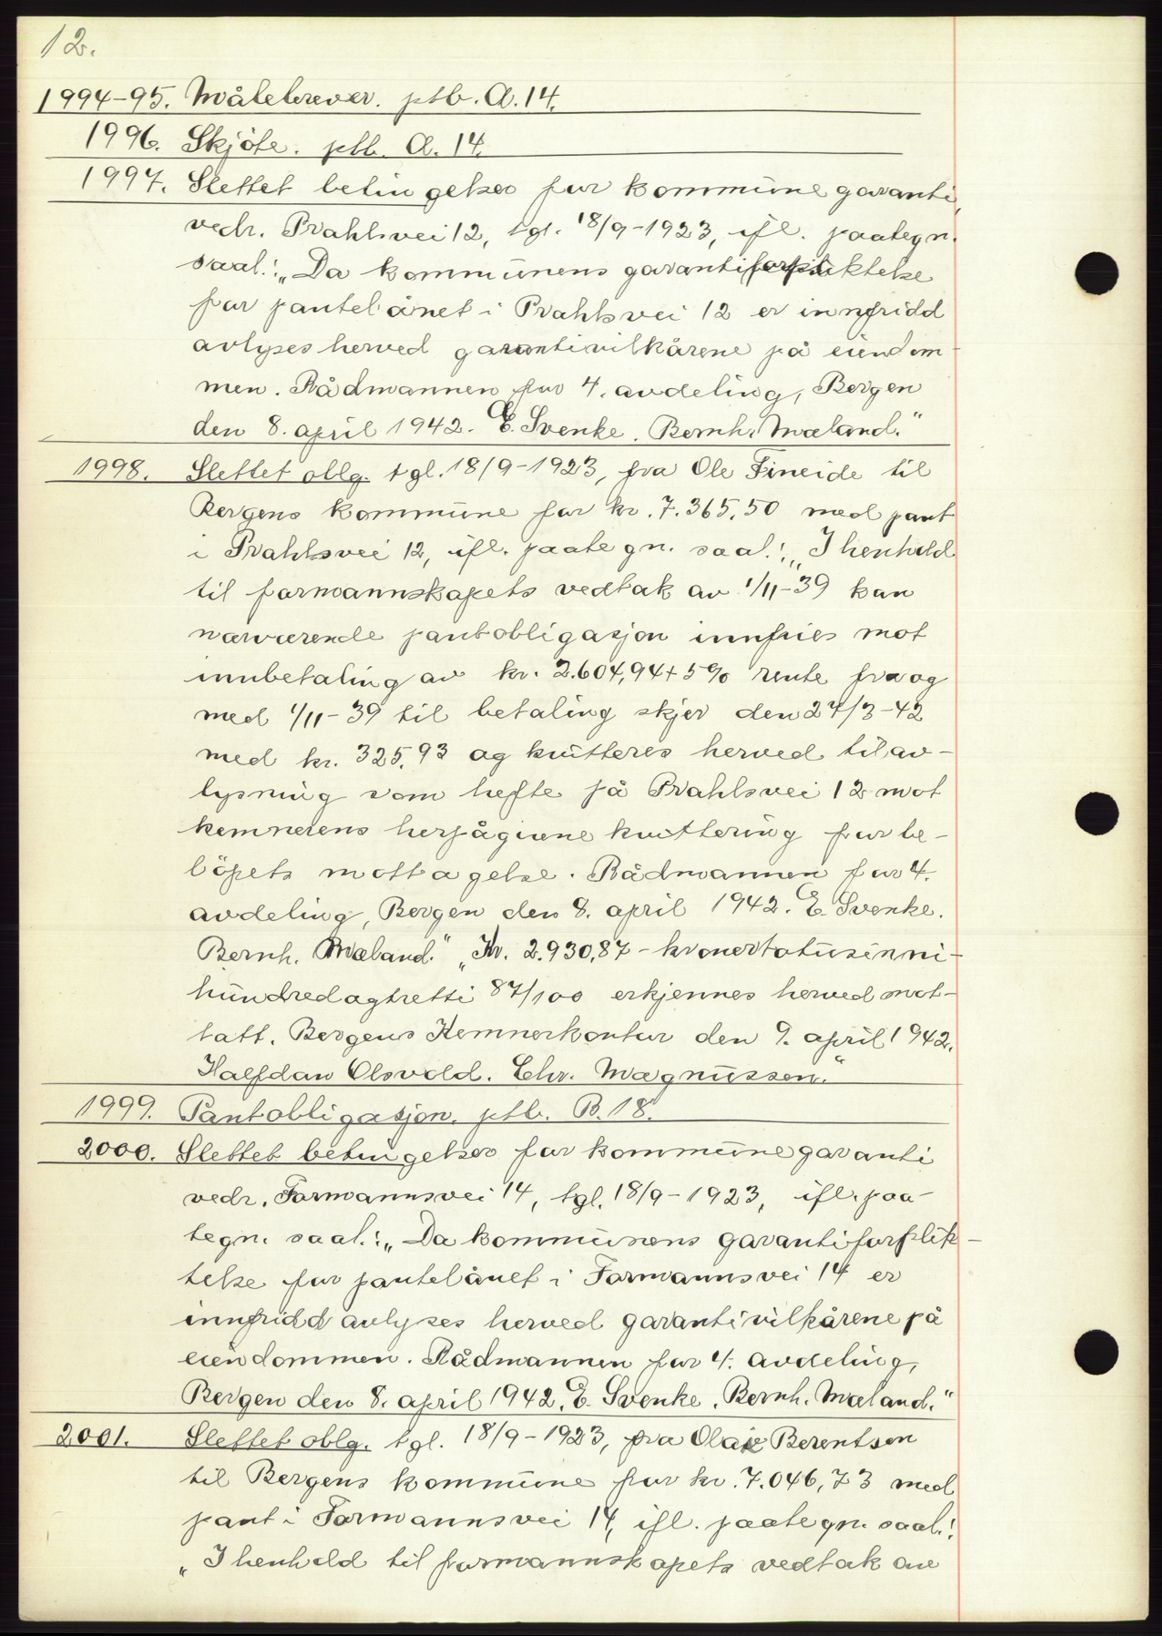 12.
1994-95. Målebrever. ptb. A.14.
1996. Skjöte. ptb. A. 14.
1997. Slettet betingelser for kommunegaranti,
vedr. Prahlsvei 12, tgl. 18/9-1923, ifl. paategn.
saal.: „Da kommunens garantiforpliktelse
for pantelånet i Prahlsvei 12 er innfridd
avlyses herved garantivilkårene på eiendom-
men. Rådmannen for 4. avdeling, Bergen
den 8. april 1942. E. Svenke. Bernh. Mæland."
1998. Slettet oblg. tgl. 18/9-1923, fra Ole Fineide til
Bergens kommune for kr. 7.365,50 med pant
i Prahlsvei 12, ifl. paategn. saal.: „I henhold
til formannskapets vedtak av 1/11-39 kan
nærværende pantobligasjon innfries mot
innbetaling av kr. 2.604,94 + 5% rente fra og
med 1/11-39 til betaling skjer den 27/3-42
med kr. 325,93 og kvitteres herved til av-
lysning som hefte på Prahlsvei 12 mot
kemnerens herpågivne kvittering for be-
löpets mottagelse. Rådmannen for 4.
avdeling, Bergen den 8. april 1942. E. Svenke.
Bernh. Mæland." „Kr. 2.930,87 - kronertotusenni-
hundredogtretti 87/100 erkjennes herved mot-
tatt. Bergens Kemnerkontor den 9. april 1942.
Halfdan Olsvold. Chr. Magnussen."
1999. Pantobligasjon. ptb. B. 18.
2000. Slettet betingelser for kommunegaranti
vedr. Formannsvei 14, tgl. 18/9-1923, ifl. paa-
tegn. saal.: „Da kommunens garantiforplik-
telse for pantelånet i Formannsvei 14 er
innfridd avlyses herved garantivilkårene på
eiendommen. Rådmannen for 4. avdeling,
Bergen den 8. april 1942. E. Svenke. Bernh. Mæland."
2001. Slettet oblg. tgl. 18/9-1923, fra Olai Berentsen
til Bergens kommune for kr. 7.046,73 med
pant i Formannsvei 14, ifl. paategn. saal.:
„I henhold til formannskapets vedtak av